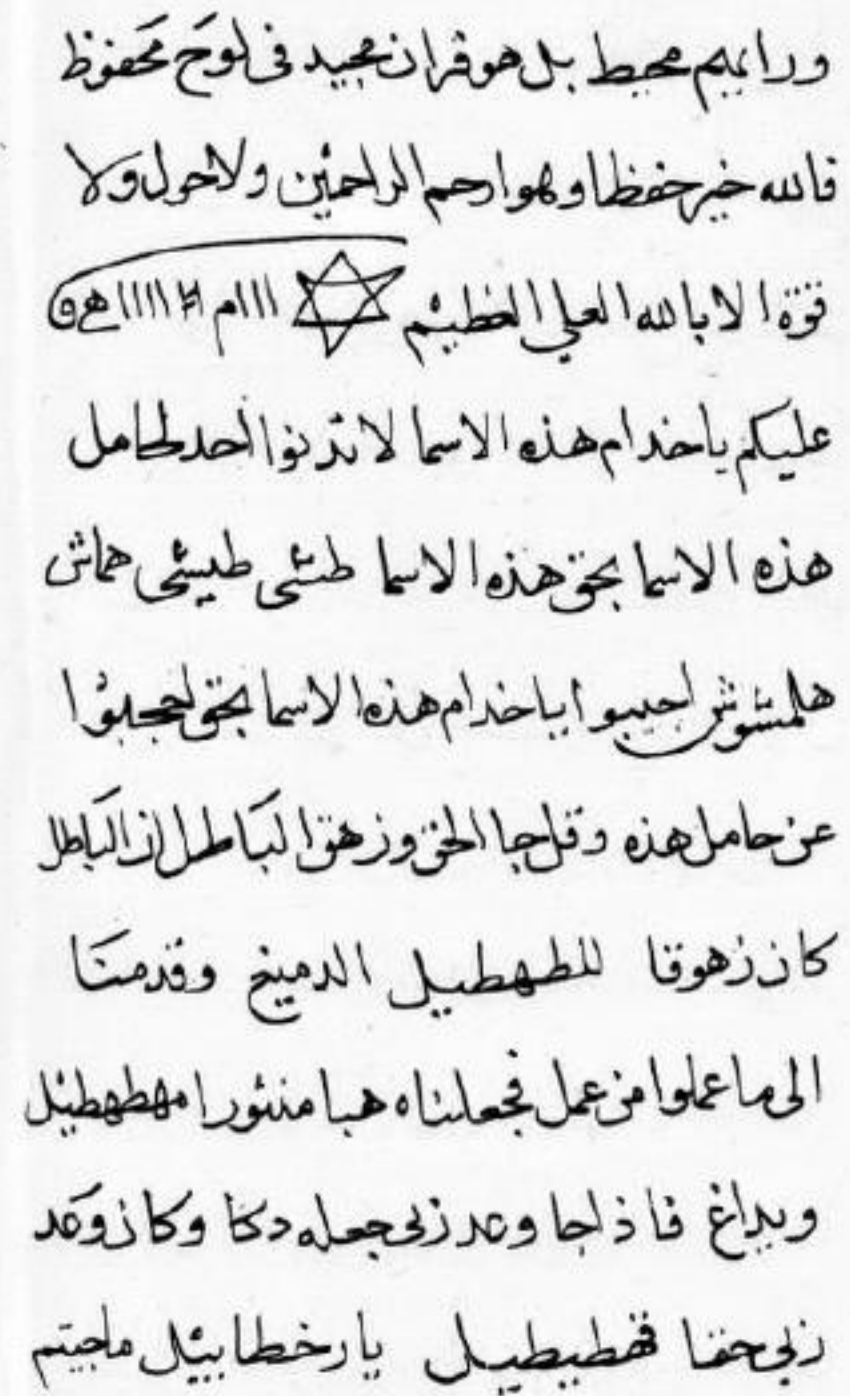 ورايهم محيط بل هو قران مجيد فى لوح محفوظ
فالله خير حفظا وهو ارحم الراحمين ولاحول ولا
قوة الا بالله العلي العظيم ااام ااااا
عليكم ياخدام هذه الاسما لا تدنوا احد لحامل
هذه الاسما بحق هذه الاسما طشى طيشى هماش
هلمشوش اجيبوا ياخدام هذه الاسما بحق احجبوا
عن حامل هذه وقل جا الحق وزهق الباطل ان الباطل
كان زهوقا للطهطيل الدميخ وقدمنا
الى ما عملوا من عمل فجعلناه هبا منثورا مهطهطيل
وبداغ فاذا جا وعد ربى جعله دكا وكان وعد
ربى حقا قهطيطيل يا رخطابيل ماجيتم